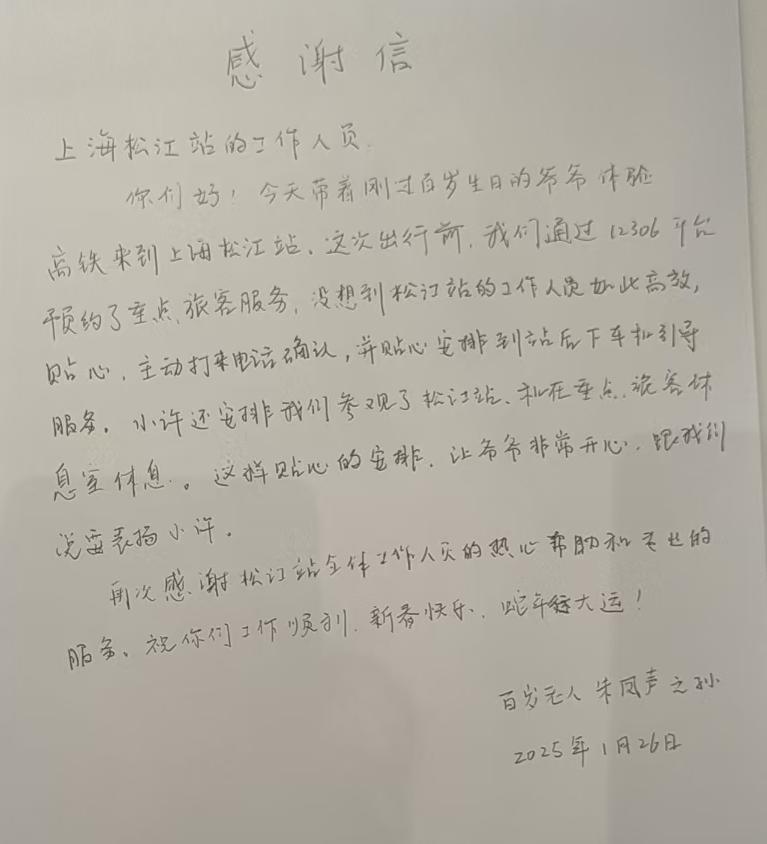 感谢信
上海松江站的工作人员.
你们好！今天带着刚过百岁生日的爷爷体验
高铁来到上海松江站、这次出行前，我们通过12306平台
预约了重点旅客服务，没想到松江站的工作人员如此高效，
贴心，主动打来电话确认，并贴心安排到站后下车和引导
服务。小许还安排我们参观了松江站、和在重点旅客休
息室休息。这样贴心的安排，让爷爷非常开心，跟我们
说要表扬小许。
再次感谢松江站全体工作人员的热心帮助和专业的
服务、祝你们工作顺利，新春快乐，蛇年大运！
百岁老人朱凤声之孙
2025年1月26日